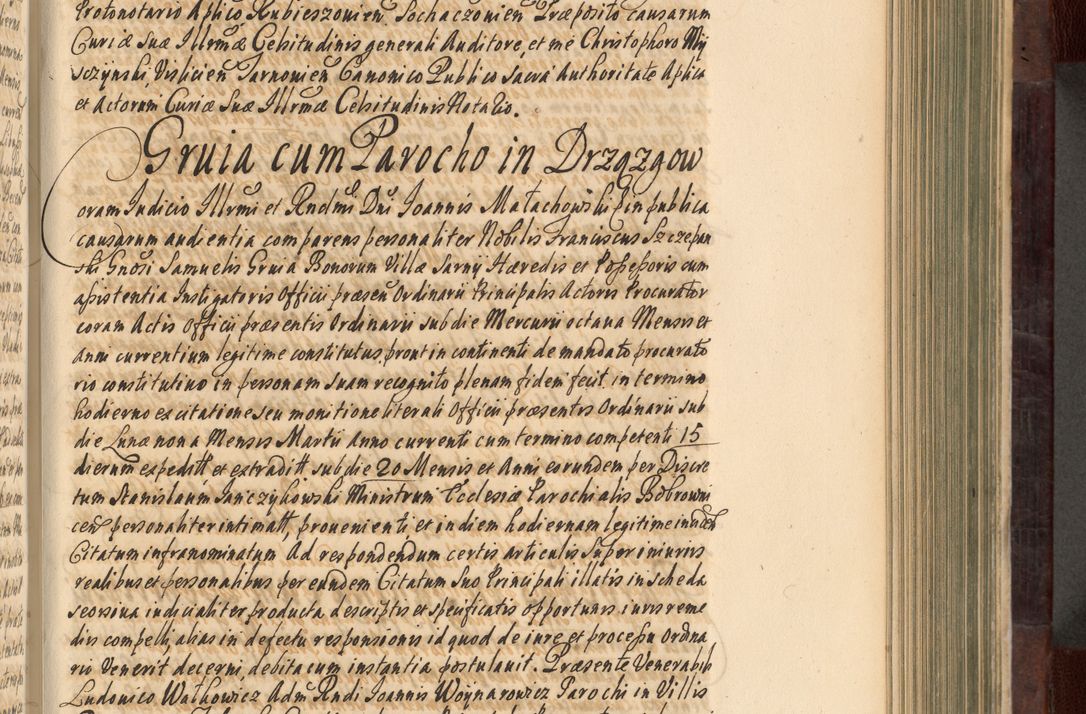 Protonotario Aplico Hubieszovien Sochaczovien Præposito causarum
Curiæ Suæ Illrmæ Celsitudinis generali Auditore, et me Christophoro My
szczynski, Vislicien Tarnovien Canonico Publico Sacra Authoritate Aplica
et Actorum Curiæ Suæ Illrmæ Celsitudinis Notario.
Gruia cum Parocho in Drzązgow
oram Iudicio Illrmi et Rndmi Dni Ioannis Małachowski Epin publica
causarum audientia comparens personaliter Nobilis Franciscus Szczepan
ski Gnosi Samuelis Gruia Bonorum Villæ Sarny Hæredis et Possessoris cum
assistentia Instigatoris Officii præsen Ordinarii Principalis Actoris Procurator
coram Actis Officii præsentis Ordinarii sub die Mercurii octaua Mensis et
Anni currentium legitime constitutus, prout in continenti de mandato procurato
rio constitutivo in personam suam recognito plenam fidem fecit, in termino
hodierno ex citatione seu monitione literali Officii præsentis Ordinarii sub
die Lunæ nona Mensis Martii Anno currenti cum termino competenti 15
dierum expedit et extradit sub die 20 Mensis et Anni eorundem per Discre
tum Stanislaum Janczykowski Ministrum Ecclesiæ Parochialis Bobrowni
cen personaliter intimatt, prouenienti, et in diem hodiernam legitime inciden
Citatum infranominatum Ad respondendum certis articulis Super iniuriis
realibus et personalibus per eundem Citatum Suo Principali illatis in scheda
seorsiua iudicialiter producta descriptis et specificatis opportunis iuris reme
diis compelli, alias in defectu responsionis id quod de iure et processu Ordina
rio Venerit decerni, debita cum instantia postulauit. Præsente Venerabili
Ludouico Wałkowicz Adm Rndi Ioannis Woynarowicz Parochi in Villis